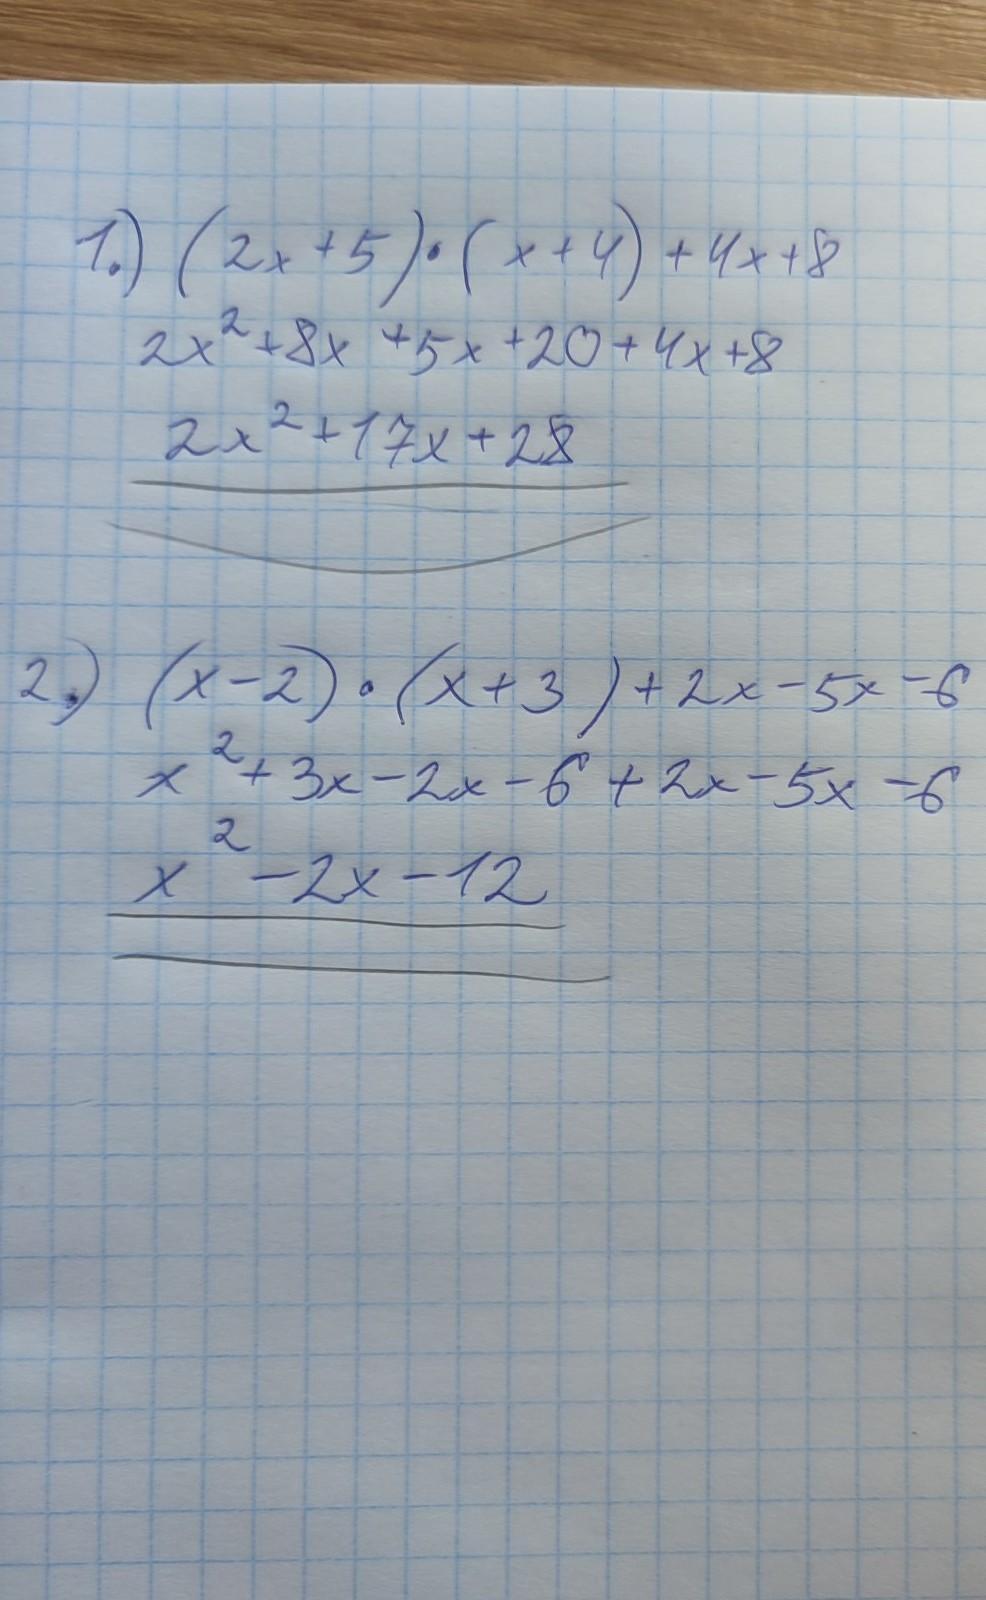 1.) (2x+5)·(x+4)+4x+8
2x²+8x+5x+20+4x+8
2x²+17x+28
2.) (x-2)·(x+3)+2x-5x-6
x²+3x-2x-6+2x-5x-6
x²-2x-12